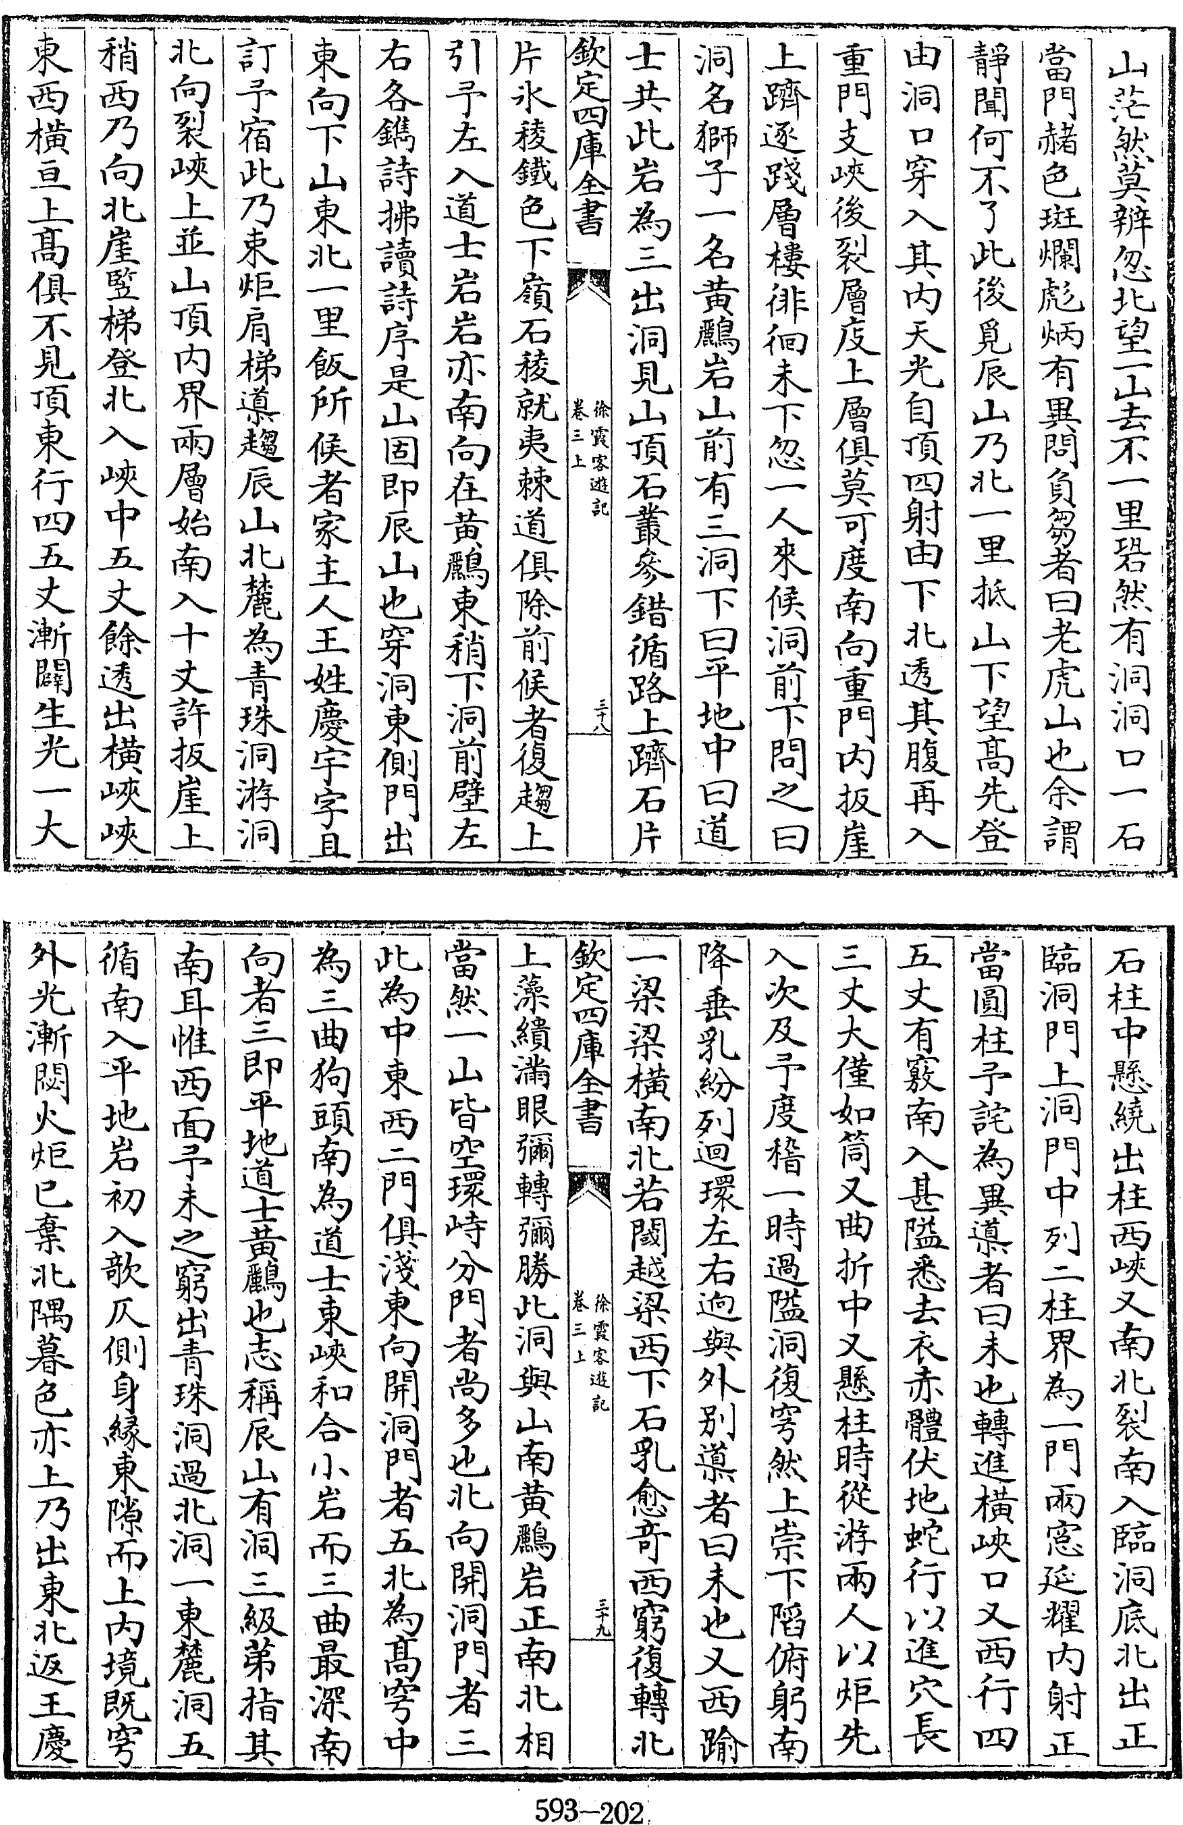 山茫然莫辨忽北望一山去不一里硲然有洞洞口一石
當門赭色斑斕彪炳有異問負芻者曰老虎山也余謂
靜聞何不了此後覓辰山乃北一里抵山下望髙先登
由洞口穿入其内天光自頂四射由下北透其腹再入
重門支峽後裂層庋上層俱莫可度南向重門内扳崖
上躋逐踐層樓徘徊未下忽一人來候洞前下問之曰
洞名獅子一名黄鸝岩山前有三洞下曰平地中曰道
士共此岩為三出洞見山頂石叢參錯循路上躋石片
欽定四庫全書
徐霞客遊記
卷三上
三十八
片氷稜鐵色下嶺石稜就夷棘道俱除前候者復趨上
引予左入道士岩岩亦南向在黄鸝東稍下洞前壁左
右各鐫詩拂讀詩序是山固即辰山也穿洞東側門出
東向下山東北一里飯所候者家主人王姓慶宇字且
訂予宿此乃束炬肩梯導趨辰山北麓為青珠洞游洞
北向裂峽上並山頂内界兩層始南入十丈許扳崖上
稍西乃向北崖竪梯登北入峽中五丈餘透出橫峽峽
東西橫亘上髙俱不見頂東行四五丈漸闢生光一大
石柱中懸繞出柱西峽又南北裂南入臨洞底北出正
臨洞門上洞門中列二柱界為一門兩窓延耀内射正
當圓柱予詫為異導者曰未也轉進橫峽口又西行四
五丈有竅南入甚隘悉去衣赤體伏地蛇行以進穴長
三丈大僅如筒又曲折中又懸柱時從游兩人以炬先
入次及予度稽一時過隘洞復穹然上崇下陷俯躬南
降垂乳紛列迴環左右逈與外别導者曰未也又西踰
一梁梁橫南北若閾越梁西下石乳愈奇西窮復轉北
欽定四庫全書
徐霞客遊記
卷三上
三十九
上藻繢滿眼彌轉彌勝此洞與山南黄鸝岩正南北相
當然一山皆空環峙分門者尚多也北向開洞門者三
此為中東西二門俱淺東向開洞門者五北為髙穹中
為三曲狗頭南為道士東峽和合小岩而三曲最深南
向者三即平地道士黄鸝也志稱辰山有洞三級第指其
南耳惟西面予未之窮出青珠洞過北洞一東麓洞五
循南入平地岩初入歌仄側身緣東隙而上内境既穹
外光漸閟火炬已棄北隅暮色亦上乃出東北返王慶
593-202